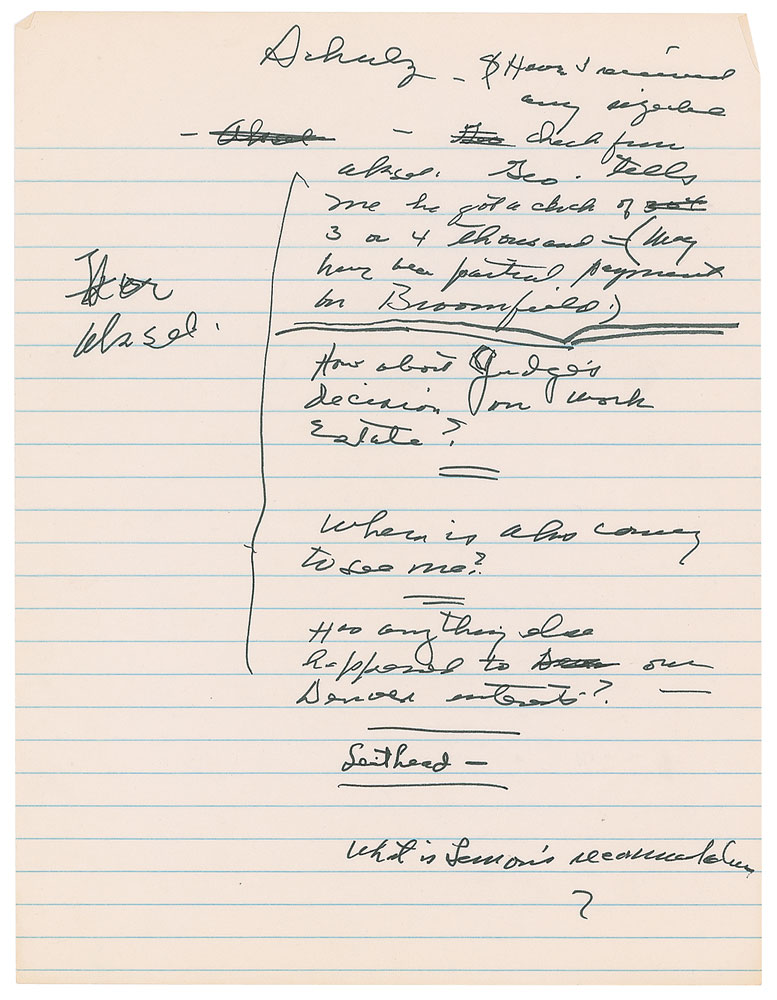 Schulz - Have I received
any sizeable
- - check from
Aksel. Geo. tells
me he got a check of
3 or 4 thousand = (May
have been partial payment
on Broomfield.)
For
Aksel.
How about Judge's
decision on work
Estate?
When is Aks coming
to see me?
Has anything else
happened to our
Denver interests? —
Leithead —
What is Lemon's recommendation
?